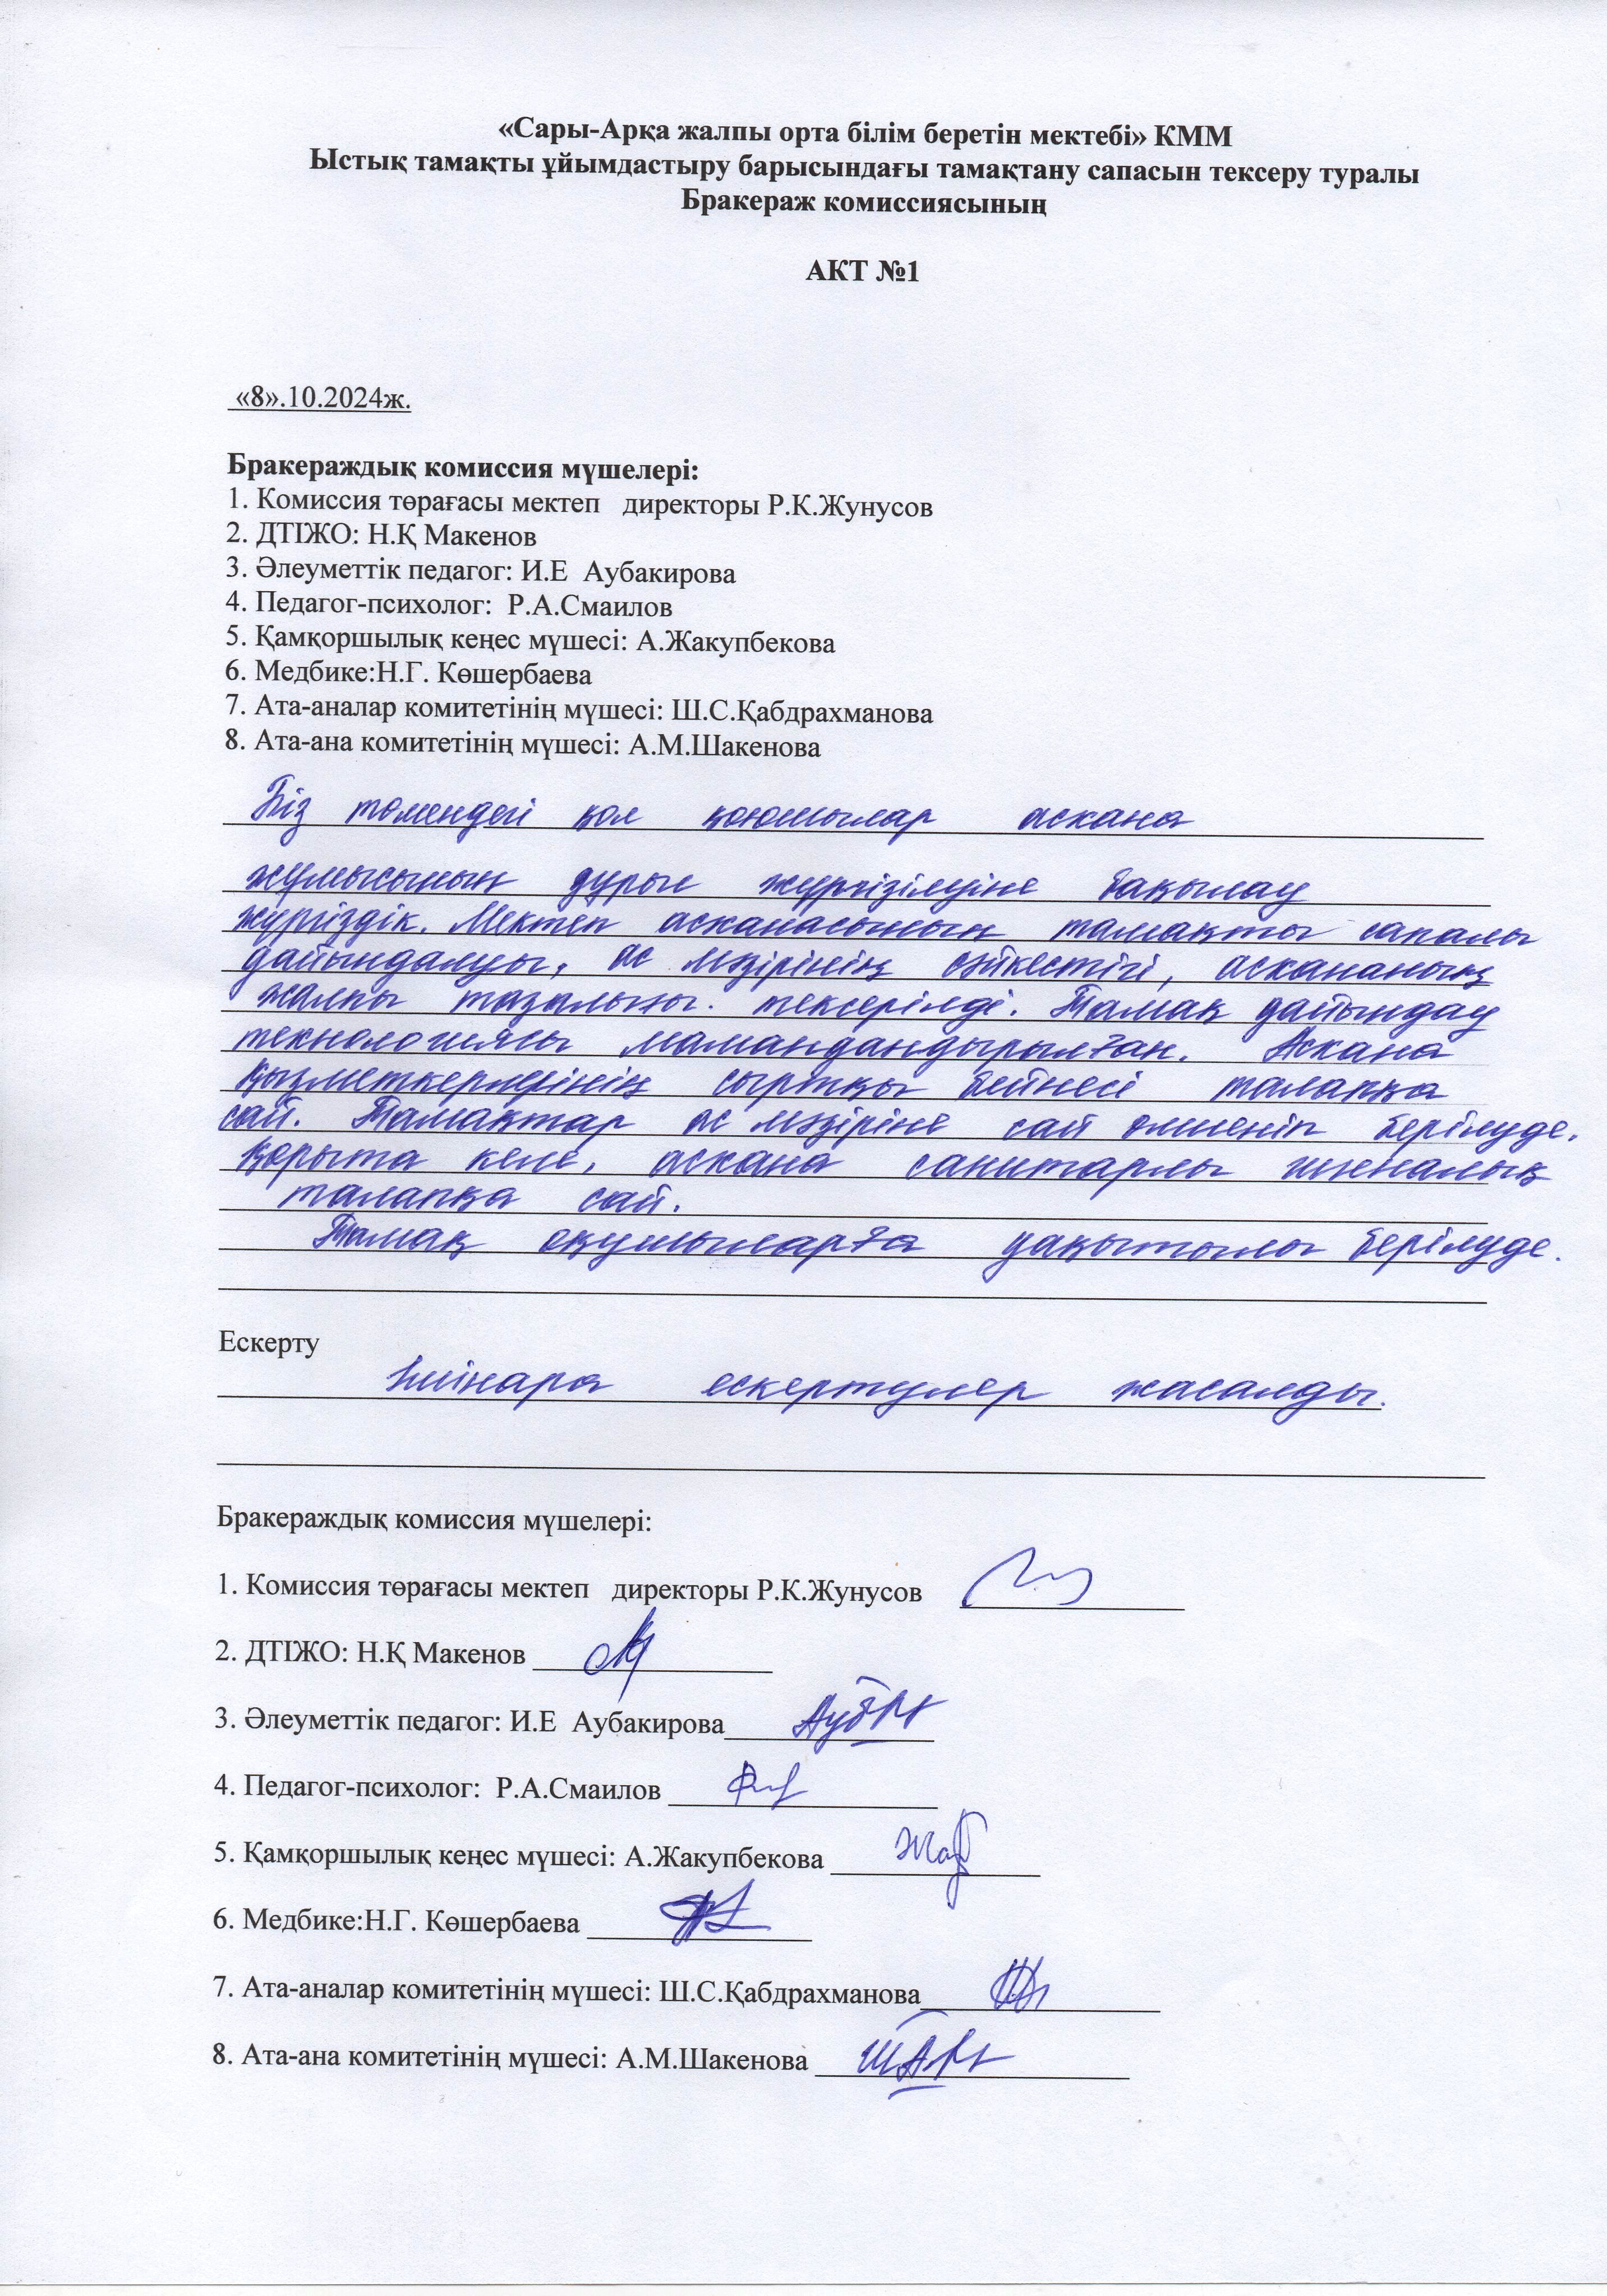 «Сары-Арқа жалпы орта білім беретін мектебі» КММ
Ыстық тамақты ұйымдастыру барысындағы тамақтану сапасын тексеру туралы
Бракераж комиссиясының
АКТ №1
«8».10.2024ж.
Бракераждық комиссия мүшелері:
1. Комиссия төрағасы мектеп директоры Р.К.Жунусов
2. ДТІЖО: Н.Қ Макенов
3. Әлеуметтік педагог: И.Е Аубакирова
4. Педагог-психолог: Р.А.Смаилов
5. Қамқоршылық кеңес мүшесі: А.Жакупбекова
6. Медбике:Н.Г. Көшербаева
7. Ата-аналар комитетінің мүшесі: Ш.С.Қабдрахманова
8. Ата-ана комитетінің мүшесі: А.М.Шакенова
Біз төмендегі қол қоюшылар асхана
жұмысының дұрыс жүргізілуіне бақылау
жүргіздік. Мектеп асханасының тамақты сапалы
дайындалуы, ас мәзірінің сәйкестігі, асхананың
жалпы тазалығы. тексерілді. Тамақ дайындау
технологиясы мамандандырылған. Асхана
қызметкерлерінің сыртқы бейнесі талапқа
сай. Тамақтар ас мәзіріне сай өлшеніп берілуде.
Қорыта келе, асхана санитарлы гигеналық
талапқа сай.
Тамақ оқушыларға уақытылы берілуде.
Ескерту
Ішінара ескертулер жасалды.
Бракераждық комиссия мүшелері:
1. Комиссия төрағасы мектеп директоры Р.К.Жунусов
2. ДТІЖО: Н.Қ Макенов
3. Әлеуметтік педагог: И.Е Аубакирова
4. Педагог-психолог: Р.А.Смаилов
5. Қамқоршылық кеңес мүшесі: А.Жакупбекова
6. Медбике:Н.Г. Көшербаева
7. Ата-аналар комитетінің мүшесі: Ш.С.Қабдрахманова
8. Ата-ана комитетінің мүшесі: А.М.Шакенова